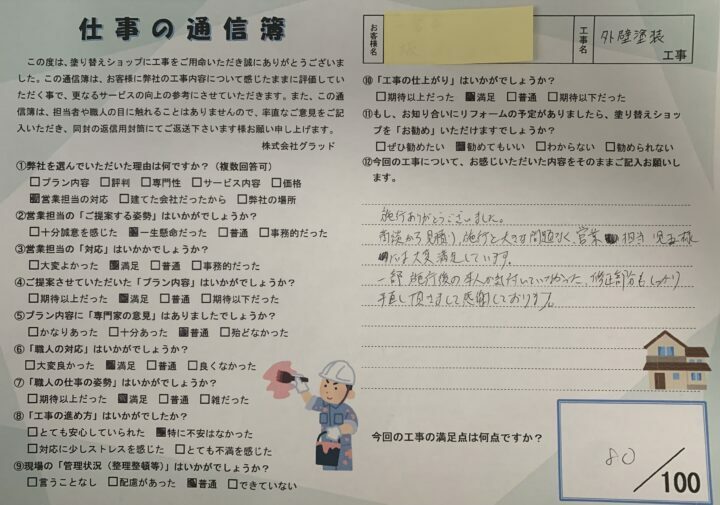 仕事の通信簿
この度は、塗り替えショップに工事をご用命いただき誠にありがとうございました。
この通信簿は、お客様に弊社の工事内容について感じたままに評価していただく事で、更なるサービスの向上の参考にさせていただきます。また、この通信簿は、担当者や職人の目に触れることはありませんので、率直なご意見をご記入いただき、同封の返信用封筒にてご返送下さいます様お願い申し上げます。
株式会社グラッド
①弊社を選んでいただいた理由は何ですか?(複数回答可)
□プラン内容 □評判 □専門性 □サービス内容 □価格
■営業担当の対応 □建てた会社だったから □弊社の場所
②営業担当の「ご提案する姿勢」はいかがでしょうか?
□十分誠意を感じた ■一生懸命だった □普通 □事務的だった
③営業担当の「対応」はいかかでしょうか?
□大変よかった ■満足 □普通 □事務的だった
④ご提案させていただいた「プラン内容」はいかがでしょうか?
□期待以上だった ■満足 □普通 □期待以下だった
⑤プラン内容に「専門家の意見」はありましたでしょうか?
□かなりあった □十分あった ■普通 □殆どなかった
⑥「職人の対応」はいかがでしょうか?
□大変良かった ■満足 □普通 □良くなかった
⑦「職人の仕事の姿勢」はいかがでしょうか?
□期待以上だった ■満足 □普通 □雑だった
⑧「工事の進め方」はいかがでしたか?
□とても安心していられた ■特に不安はなかった
□対応に少しストレスを感じた □とても不満を感じた
⑨現場の「管理状況(整理整頓等)」はいかがでしょうか?
□言うことなし □配慮があった ■普通 □できていない
お客様名
工事名
外壁塗装
工事
⑩「工事の仕上がり」はいかがでしょうか?
□期待以上だった ■満足 □普通 □期待以下だった
⑪もし、お知り合いにリフォームの予定がありましたら、塗り替えショップを「お勧め」いただけますでしょうか?
□ぜひ勧めたい ■勧めてもいい □わからない □勧められない
⑫今回の工事について、お感じいただいた内容をそのままご記入お願いします。
施行ありがとうございました。
商談から見積り、施行と大きな問題なく、営業 担当 児玉様
には大変満足しています。
一部 施行後の本人が気付いていなかった、修正部分もしっかり
手直し頂きまして感謝しております。
今回の工事の満足点は何点ですか?
80/100